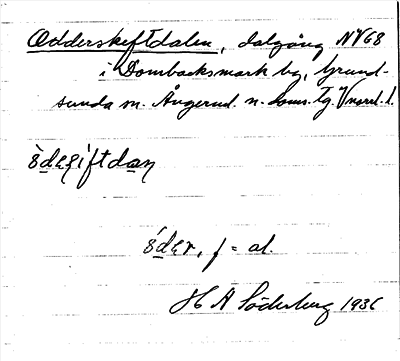 Odderskeftdalen, dalgång NV 68
i Dombacksmark by, Grund-
sunda sn. Ångerml. n. doms. tg. Vnorrl. l.
 òdeṣiftdaṇ
óder, f = al.
H A Söderberg 1936